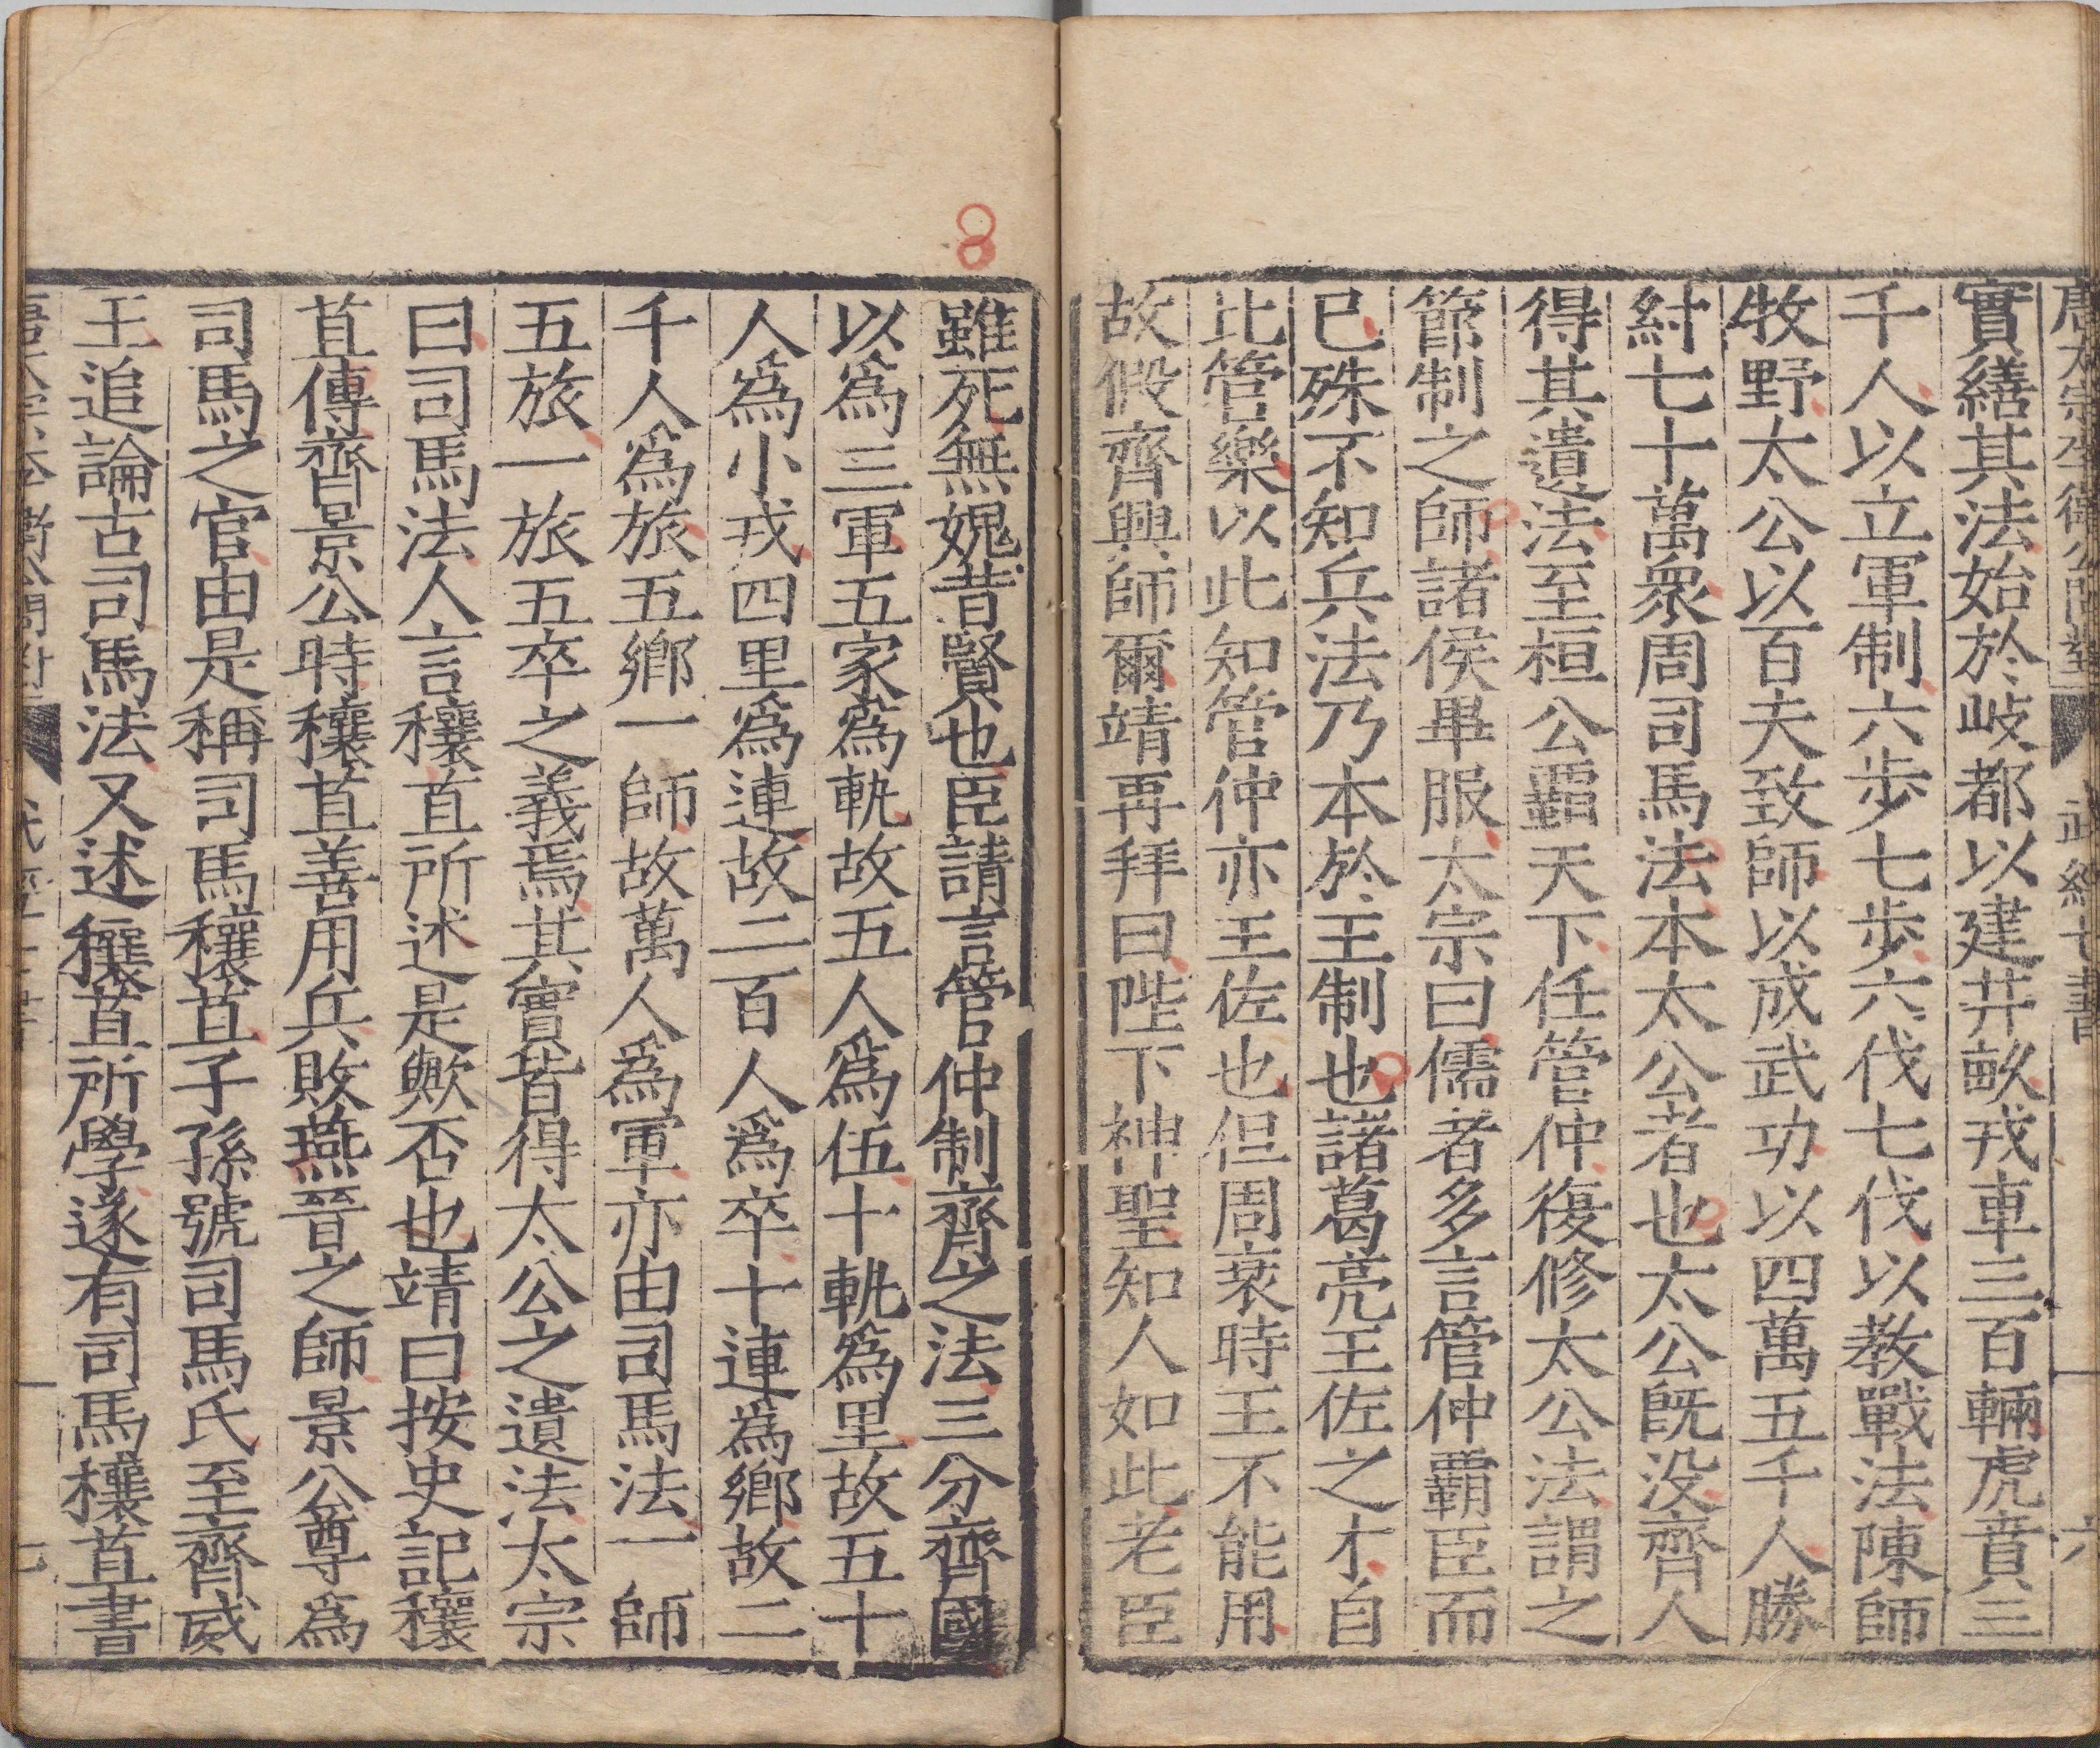 唐太宗李衛公問對 武經七書 六
實繕其法始於岐都以建井畝戎車三百輛虎賁三
千人以立軍制六步七步六伐七伐以教戰法陳師
牧野太公以百夫致師以成武功以四萬五千人勝
紂七十萬衆周司馬法本太公者也太公既没齊人
得其遺法至桓公霸天下任管仲復修太公法謂之
節制之師諸侯畢服太宗曰儒者多言管仲霸臣而
已殊不知兵法乃本於王制也諸葛亮王佐之才自
比管樂以此知管仲亦王佐也但周衰時王不能用
故假齊興師爾靖再拜曰陛下神聖知人如此老臣
雖死無媿昔賢也臣請言管仲制齊之法三分齊國
以爲三軍五家爲軌故五人爲伍十軌爲里故五十
人爲小戎四里爲連故二百人爲卒十連爲鄉故二
千人爲旅五鄉一師故萬人爲軍亦由司馬法一師
五旅一旅五卒之義焉其實皆得太公之遺法太宗
曰司馬法人言穰苴所述是歟否也靖曰按史記穰
苴傳齊景公時穰苴善用兵敗燕晉之師景公尊爲
司馬之官由是稱司馬穰苴子孫號司馬氏至齊威
王追論古司馬法又述穰苴所學遂有司馬穰苴書